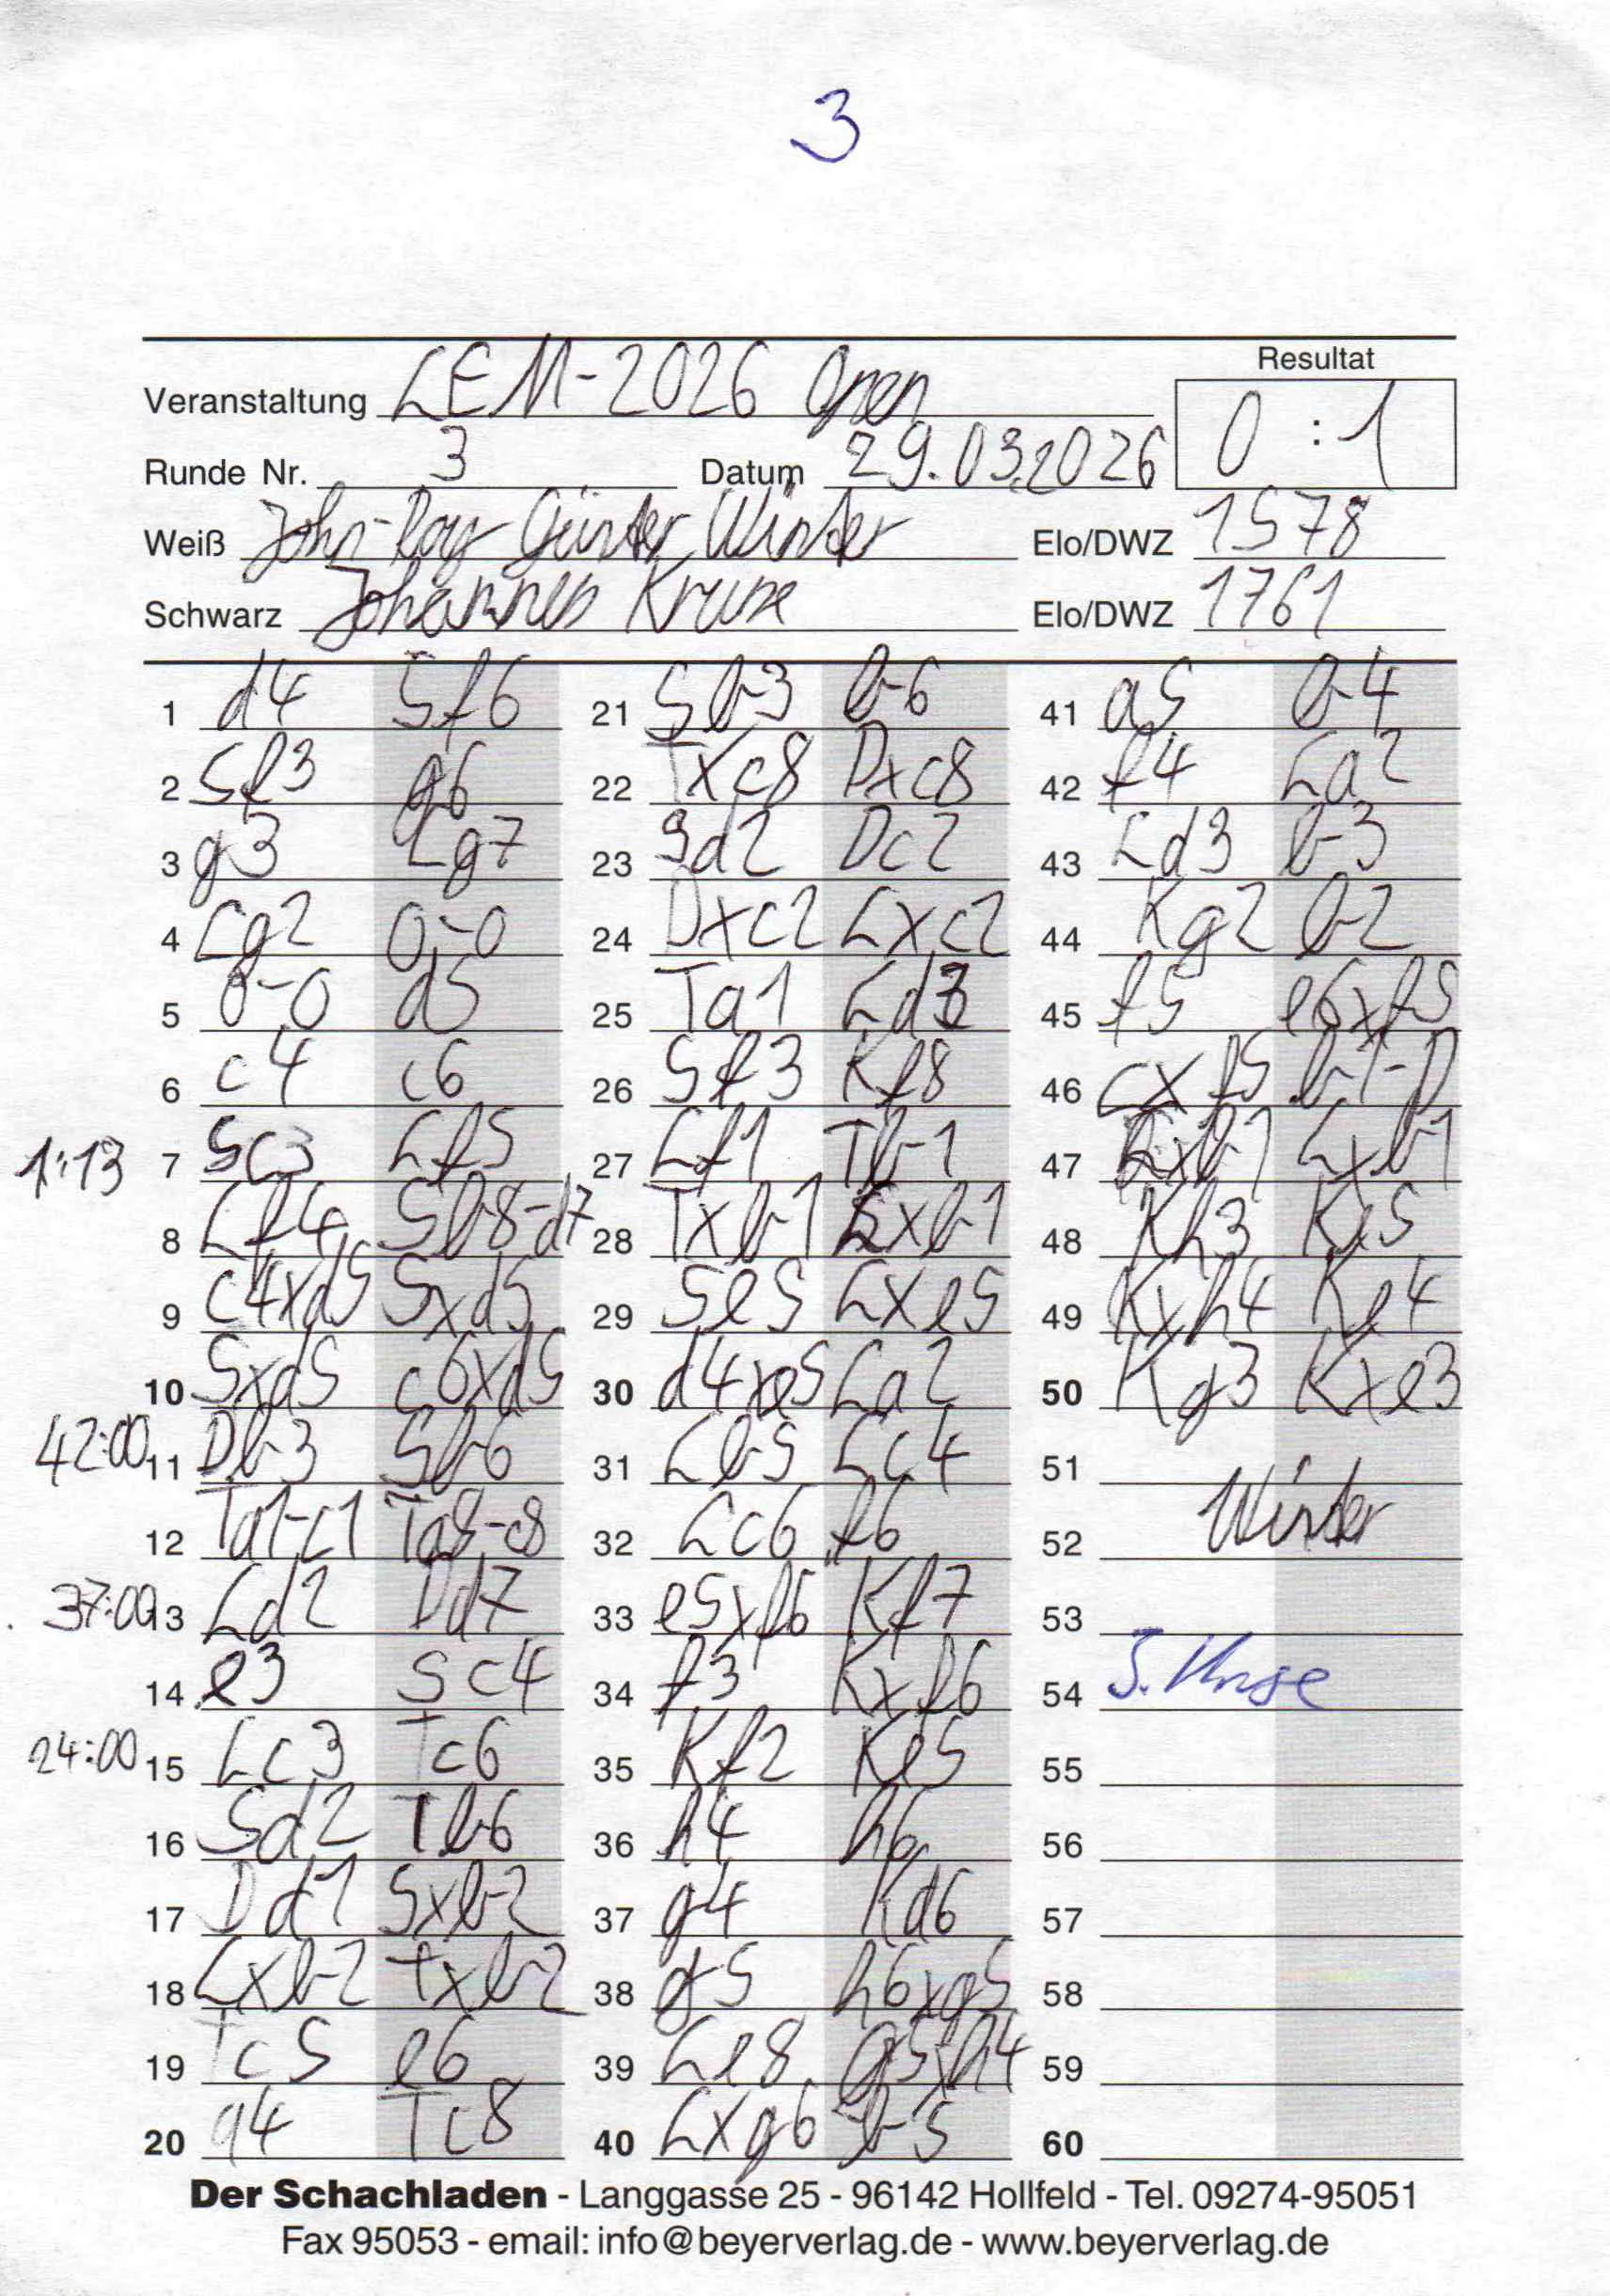 3
Resultat
Veranstaltung LEM-2026 Open 0 : 1
Runde Nr. 3 Datum 29.03.2026
Weiß John-Roy Günter Winter Elo/DWZ 1578
Schwarz Johannes Kruse Elo/DWZ 1761
1 d4 Sf6 21 Sb3 b6 41 a5 b4
2 Sf3 g6 22 Txc8 Dxc8 42 f4 La2
3 g3 Lg7 23 Sd2 Dc2 43 Ld3 b3
4 Lg2 0-0 24 Dxc2 Lxc2 44 Kg2 b2
5 0-0 d5 25 Ta1 Ld3 45 f5 e6xf5
6 c4 c6 26 Sf3 Kf8 46 Lxf5 b1-D
1:13 7 Sc3 Lf5 27 Lf1 Tb1 47 Lxb1 Lxb1
8 Lf4 Sb8-d7 28 Txb1 Lxb1 48 Kh3 Ke5
9 c4xd5 Sxd5 29 Se5 Lxe5 49 Kxh4 Ke4
10 Sxd5 c6xd5 30 d4xe5 La2 50 Kg3 Kxe3
42:00 11 Db3 Sb6 31 Lb5 Lc4 51
12 Ta1-c1 Ta8-c8 32 Lc6 f6 52 Winter
37:00 13 Ld2 Dd7 33 e5xf6 Kf7 53
14 e3 Sc4 34 f3 Kxf6 54 J. Kruse
24:00 15 Lc3 Tc6 35 Kf2 Ke5 55
16 Sd2 Tb6 36 h4 h6 56
17 Dd1 Sxb2 37 g4 Kd6 57
18 Lxb2 Txb2 38 g5 h6xg5 58
19 Tc5 e6 39 Le8 g5xh4 59
20 a4 Tc8 40 Lxg6 b5 60
Der Schachladen - Langgasse 25 - 96142 Hollfeld - Tel. 09274-95051
Fax 95053 - email: info@beyerverlag.de - www.beyerverlag.de